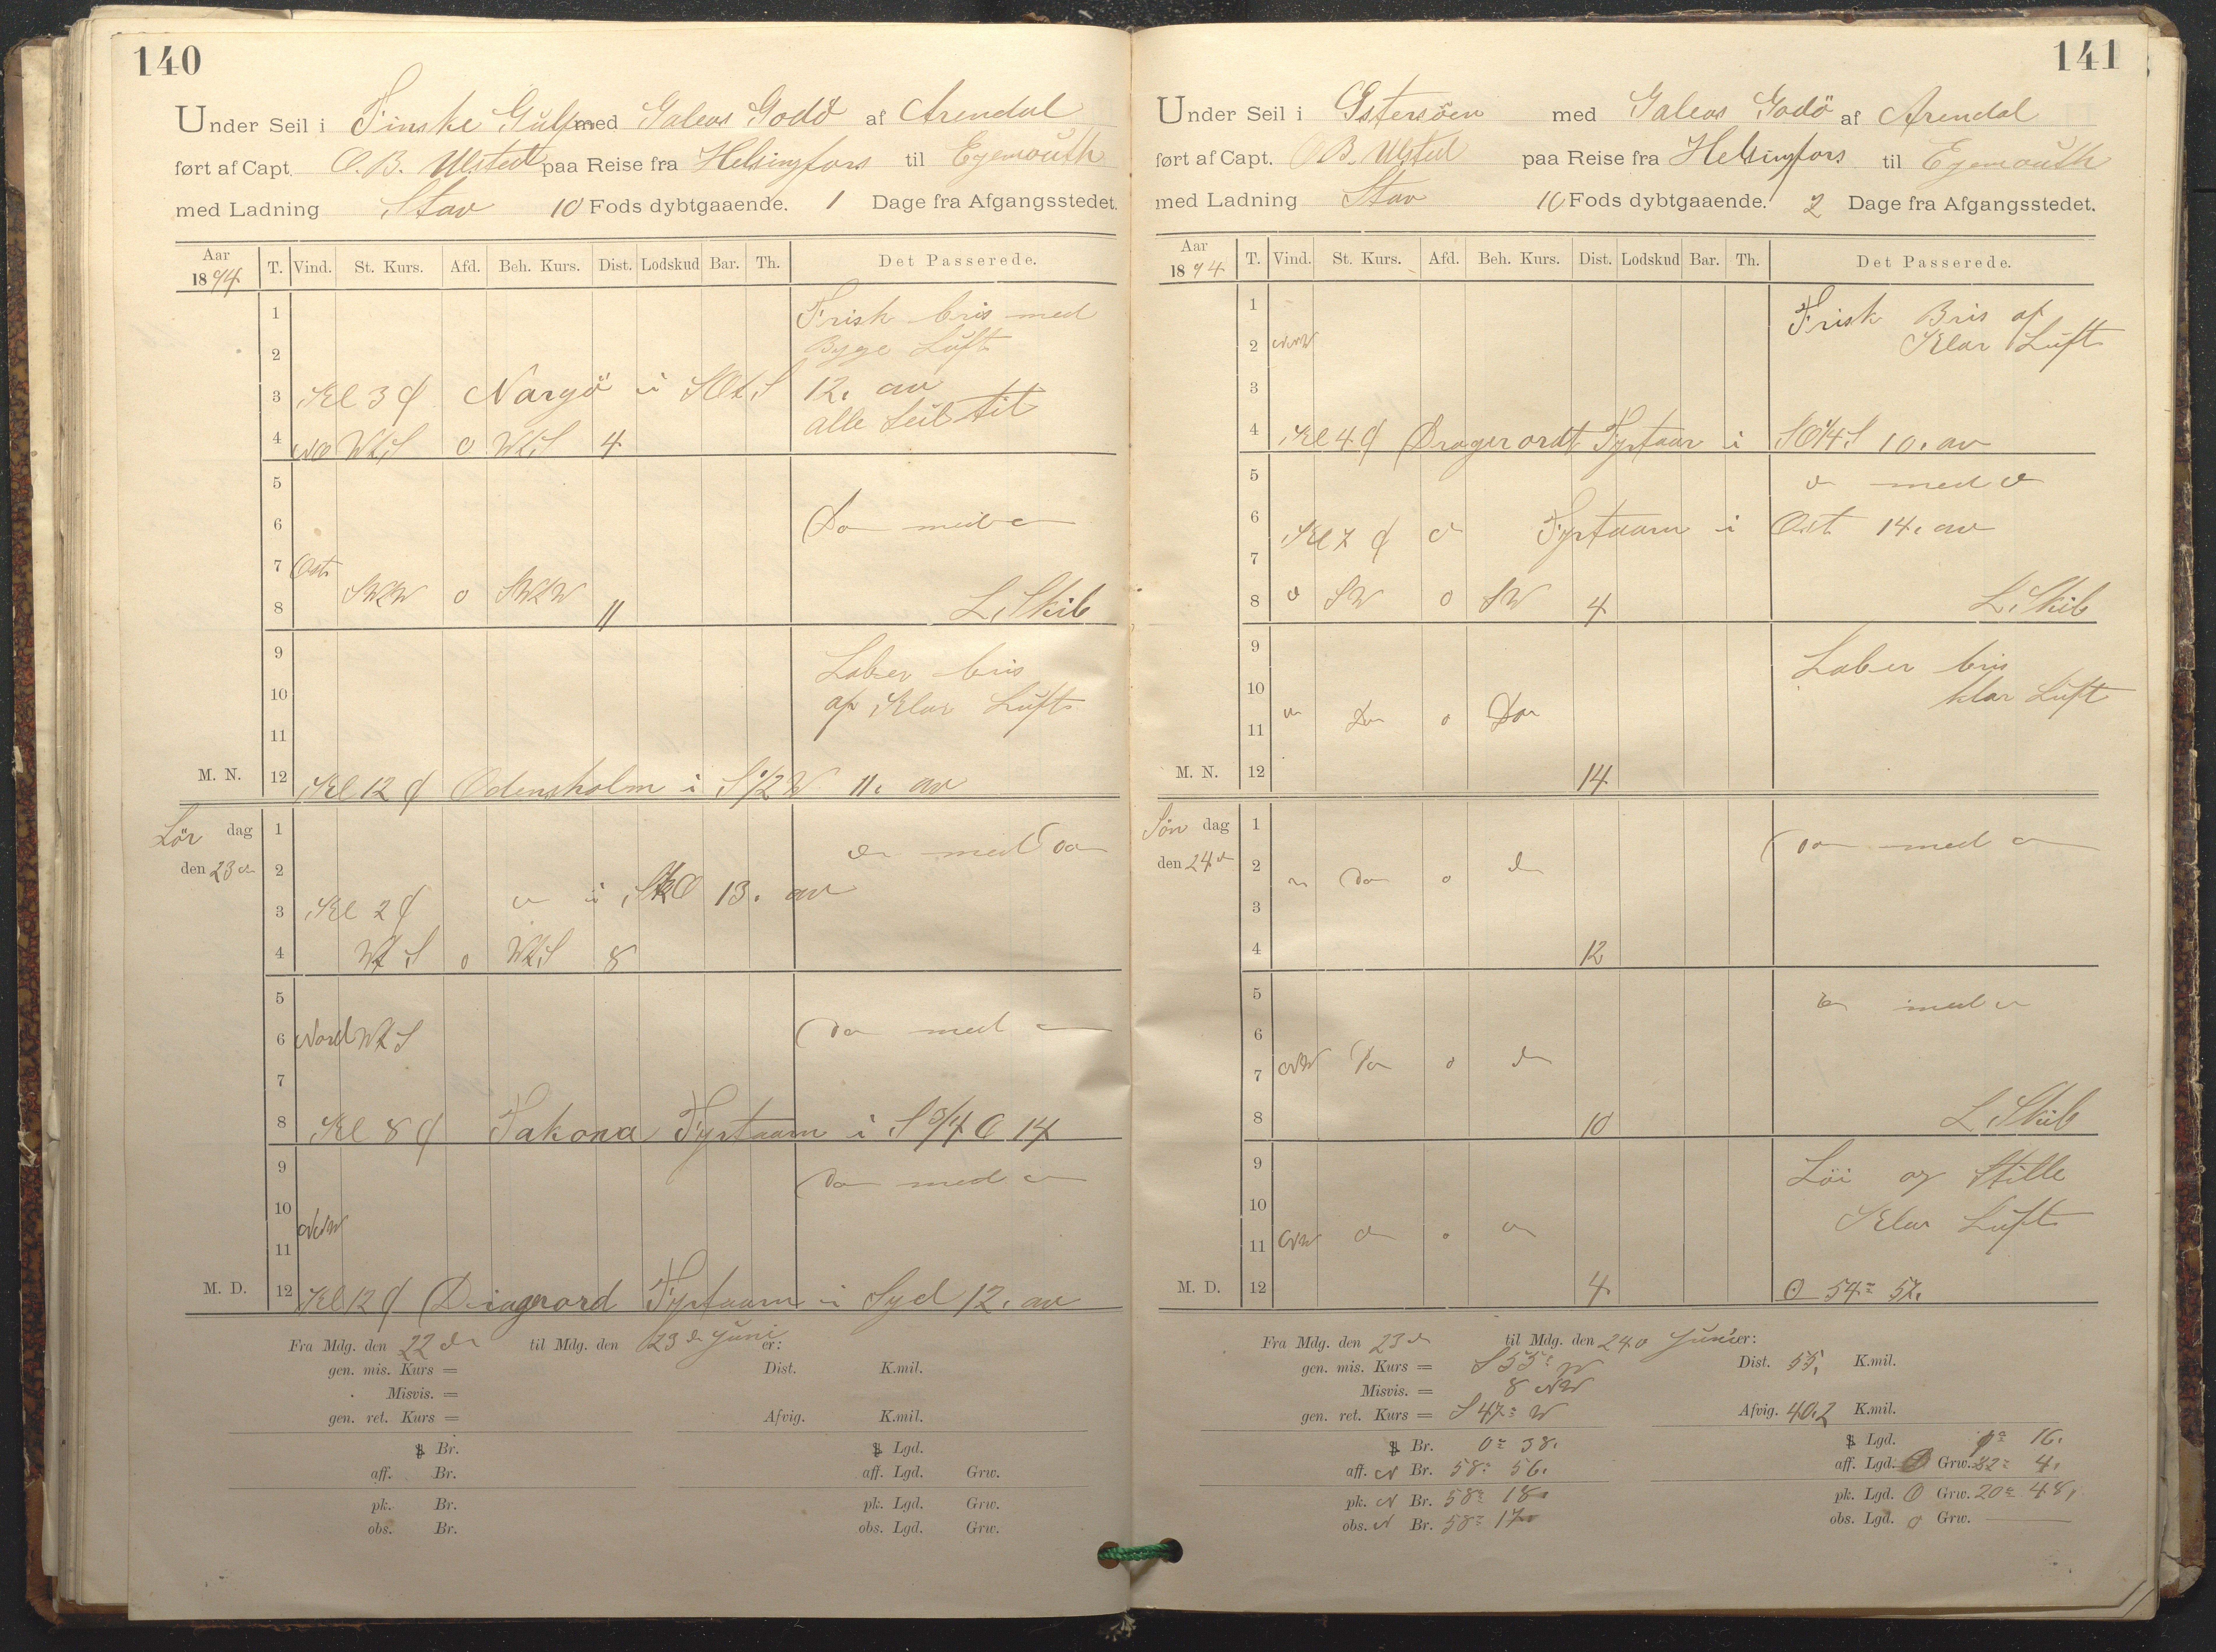 140
Under Seil i Finske Gulf med Galeas Godö af Arendal
ført af Capt. O. B. Ulsted paa Reise fra Helsingfors til Egemouth
med Ladning Stav 10 Fods dybtgaaende. 1 Dage fra Afgangsstedet.
Aar 1894 T. Vind. St. Kurs. Afd. Beh. Kurs. Dist. Lodskud Bar. Th. Det Passerede.
1 Frisk bris med
2 Byge Luft
3 Kl 3 Nargö i SOtS 12. av
alle Seil til
4 NO WtS o WtS 4
5
6 Do med
7 Ost
SWtW o SWtW
8 11 L. Skib
9 Laber bris
10 af Klar Luft
11
M. N. 12 Kl 12 Odensholm i S 1/2 W 11. av
Lör dag 1 med Do
den 23 2
3 Kl 2 i 13. av
4 WtS o WtS 8
5
6 Nord WtS Do med
7
8 Kl 8 Takona Fyrtaarn i S 3/4 O 14
9 Do med
10
NNW
11
M. D. 12 Kl 12 Dagerord Fyrtaarn i Syd 12. av
Fra Mdg. den 22 til Mdg. den 23 Juni er:
gen. mis. Kurs = Dist. K.mil.
Misvis. =
gen. ret. Kurs = Afvig. K.mil.
Br. Lgd.
aff. Br. aff. Lgd. Grw.
pk. Br. pk. Lgd. Grw.
obs. Br. obs. Lgd. Grw.
141
Under Seil i Østersöen med Galeas Godö af Arendal
ført af Capt. O B. Ulsted paa Reise fra Helsingfors til Egemouth
med Ladning Stav 10 Fods dybtgaaende. 2 Dage fra Afgangsstedet.
Aar 1894 T. Vind. St. Kurs. Afd. Beh. Kurs. Dist. Lodskud Bar. Th. Det Passerede.
1 Frisk Bris af
2 NNW Klar Luft
3
4 Kl 4 Dagerordt Fyrtaar i SO 1/4 S 10. av
5 med
6 Kl 7 Fyrtaarn i Ost 14. av
7
8 SW o SW 4 L. Skib
9 Laber bris
10 klar Luft
11 Do o Do
M. N. 12 14
Sön dag 1 Do med
den 24 2 Do o
3
4 12
5 med
6
7 NW Do o
8 10 L Skib
9 Löi og Stille
10 Klar Luft
11 NW o
M. D. 12 4 54 52.
Fra Mdg. den 23 til Mdg. den 24 Juni er:
gen. mis. Kurs = S 55 W Dist. 55. K.mil.
Misvis. = 8 NW
gen. ret. Kurs = S 47 W Afvig. 40.2 K.mil.
Br. 0 38. Lgd. 1 16.
aff. N Br. 58 56. aff. Lgd. O Grw. 22 4.
pk. N Br. 58 18 pk. Lgd. O Grw. 20 48.
obs. N Br. 58 17 obs. Lgd. o Grw.